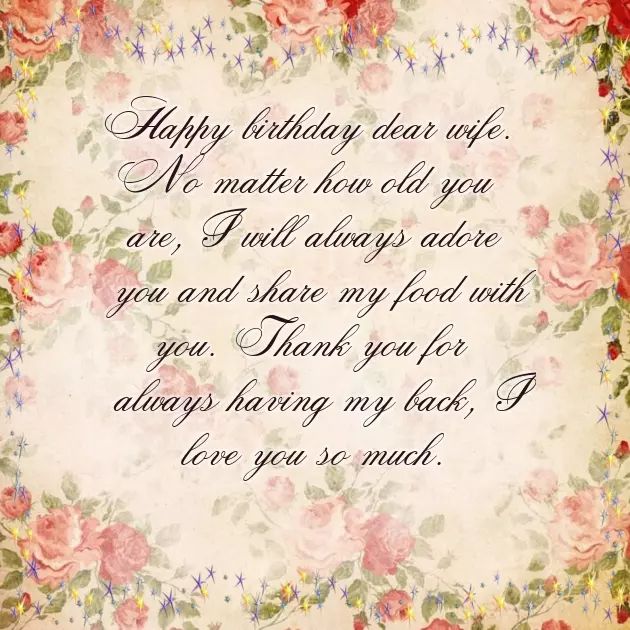 Happy birthday dear wife.
No matter how old you
are, I will always adore
you and share my food with
you. Thank you for
always having my back, I
love you so much.